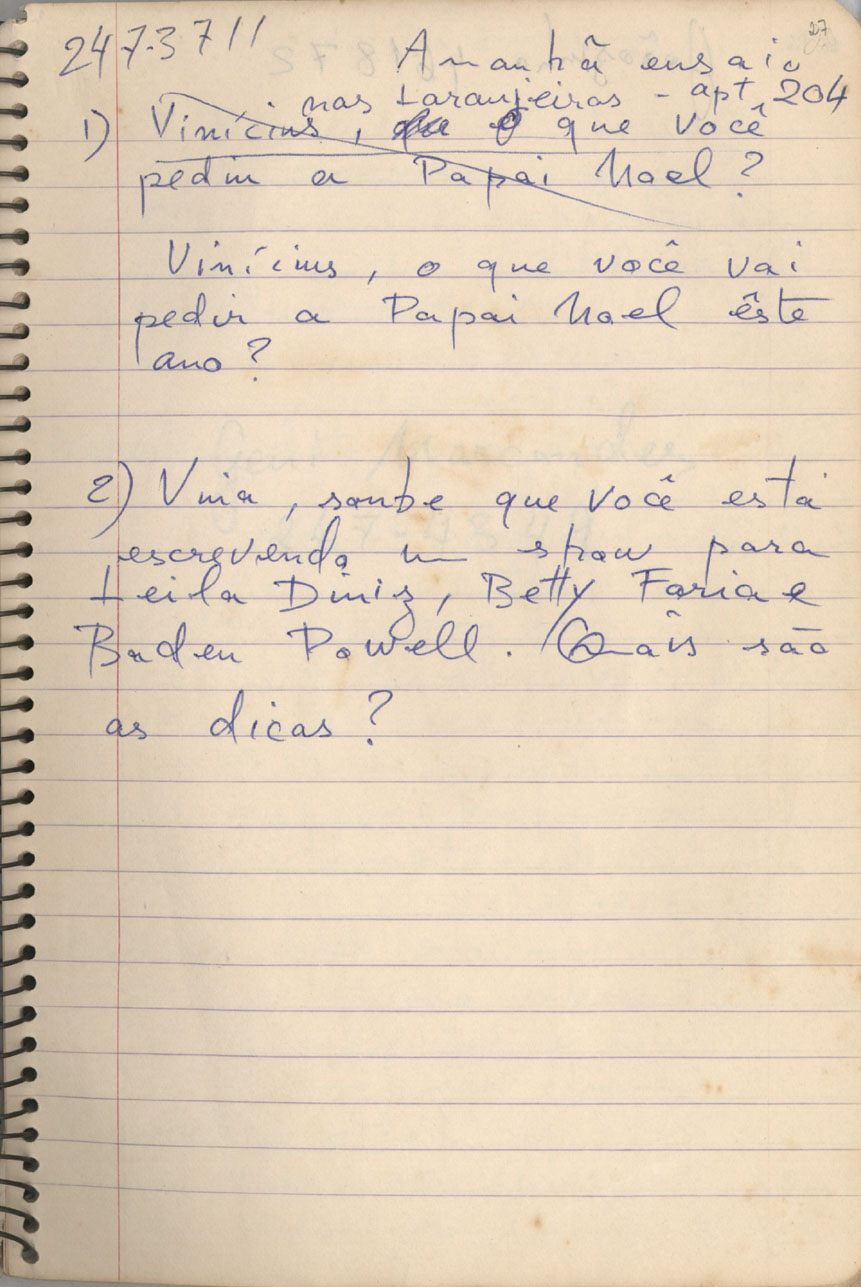 27
247-3711
Amanhã ensaio
nas Laranjeiras - apt. 204
1) Vinícius, o que você
pediu a Papai Noel?
Vinícius, o que você vai
pedir a Papai Noel êste
ano?
2) Vina, soube que você está
escrevendo um show para
Leila Diniz, Betty Faria e
Baden Powell. Quais são
as dicas?